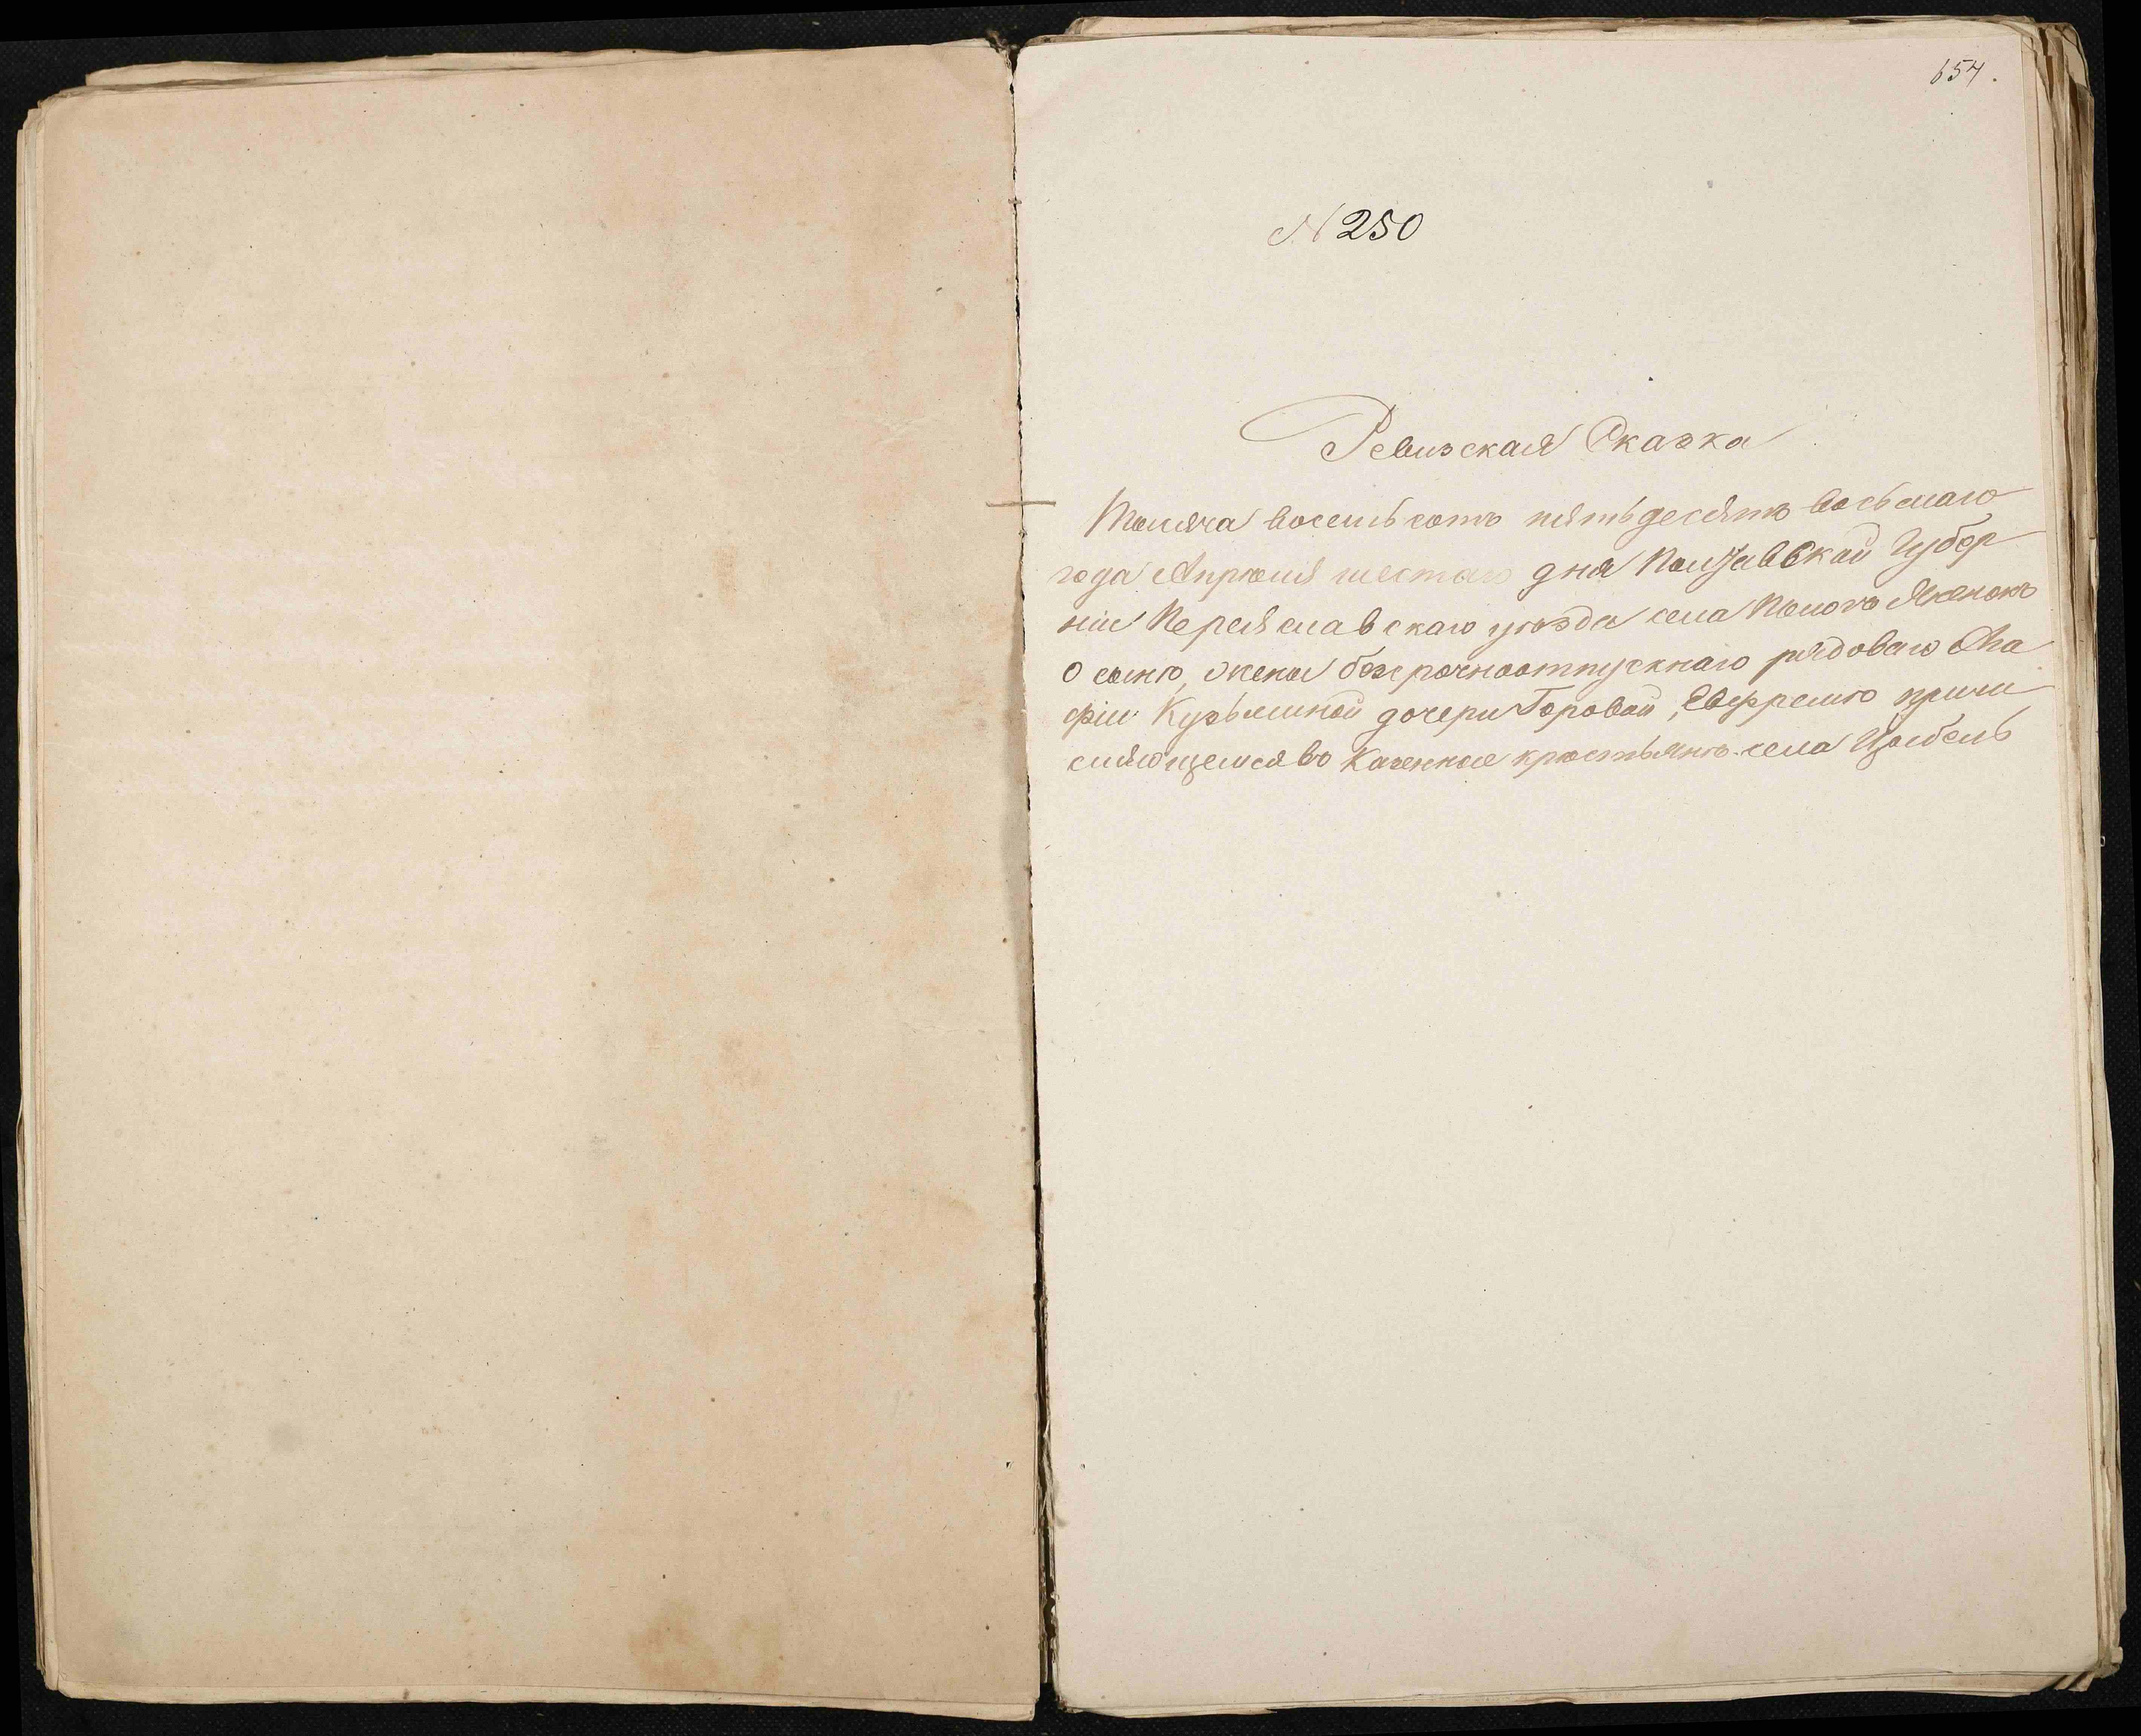 654.
N 250
Ревизская Сказка
Тысяча восемьсотъ пятьдесятъ восьмаго
года Апрѣля шестаго дня Полтавской Губер
ніи Переяславскаго уѣзда села Пологъ Яненокъ
О сынѣ, жены безсрочноотпускнаго рядоваго Ага
фіи Кузьминой дочери Горовой, Евфремѣ причи
сляющемся въ Казенное крестьянъ села Цыбель